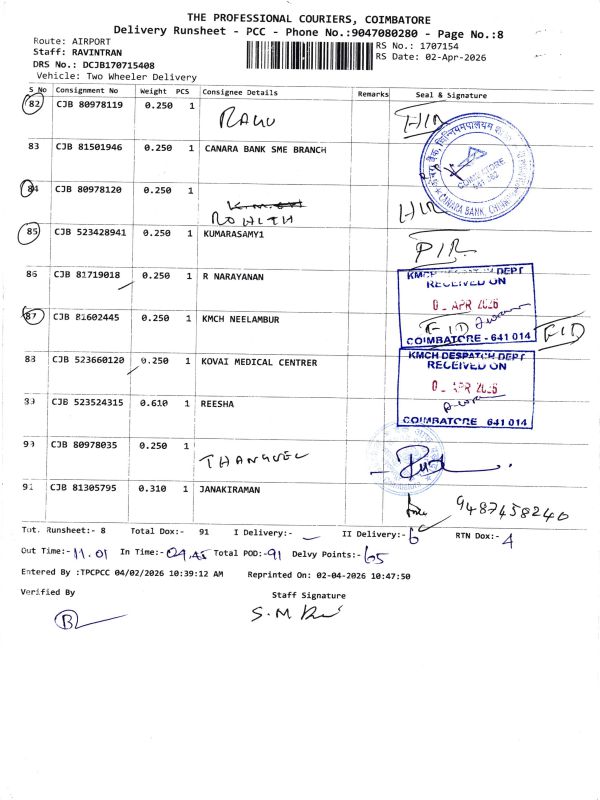 THE PROFESSIONAL COURIERS, COIMBATORE
Delivery Runsheet - PCC - Phone No.:9047080280 - Page No.:8
Route: AIRPORT
RS No.: 1707154
Staff: RAVINTRAN
RS Date: 02-Apr-2026
DRS No.: DCJB170715408
Vehicle: Two Wheeler Delivery
S No Consignment No Weight PCS Consignee Details Remarks Seal & Signature
82 CJB 80978119 0.250 1 RAGU
83 CJB 81501946 0.250 1 CANARA BANK SME BRANCH
COIMBATORE
641 062
CANARA BANK
84 CJB 80978120 0.250 1 ROHITH
85 CJB 523428941 0.250 1 KUMARASAMY1
86 CJB 81719018 0.250 1 R NARAYANAN
KMCH DESPATCH DEPT
RECEIVED ON
APR 2026
COIMBATORE - 641 014
87 CJB 81602445 0.250 1 KMCH NEELAMBUR
88 CJB 523660120 0.250 1 KOVAI MEDICAL CENTRER
KMCH DESPATCH DEPT
RECEIVED ON
APR 2026
COIMBATORE 641 014
89 CJB 523524315 0.610 1 REESHA
90 CJB 80978035 0.250 1 THANGVEL
91 CJB 81305795 0.310 1 JANAKIRAMAN
9487458240
Tot. Runsheet:- 8 Total Dox:- 91 I Delivery:- II Delivery:- 6 RTN Dox:- 4
Out Time:- 11.01 In Time:- 04.45 Total POD:- 91 Delvy Points:- 65
Entered By :TPCPCC 04/02/2026 10:39:12 AM Reprinted On: 02-04-2026 10:47:50
Verified By
Staff Signature